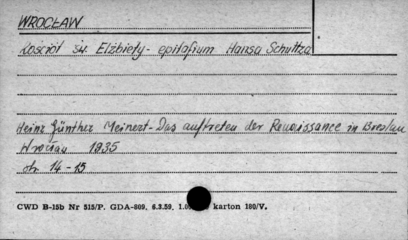 WROCŁAW
Kościół św. Elżbiety - epitafium Hansa Schultza
Heinz Günther Meinert - Das auftreten der Renaissance in Breslau
Wrocław 1935
str. 14-15
CWD B-15b Nr 515/P. GDA-809. 6.3.59. 1.0 karton 180/V.